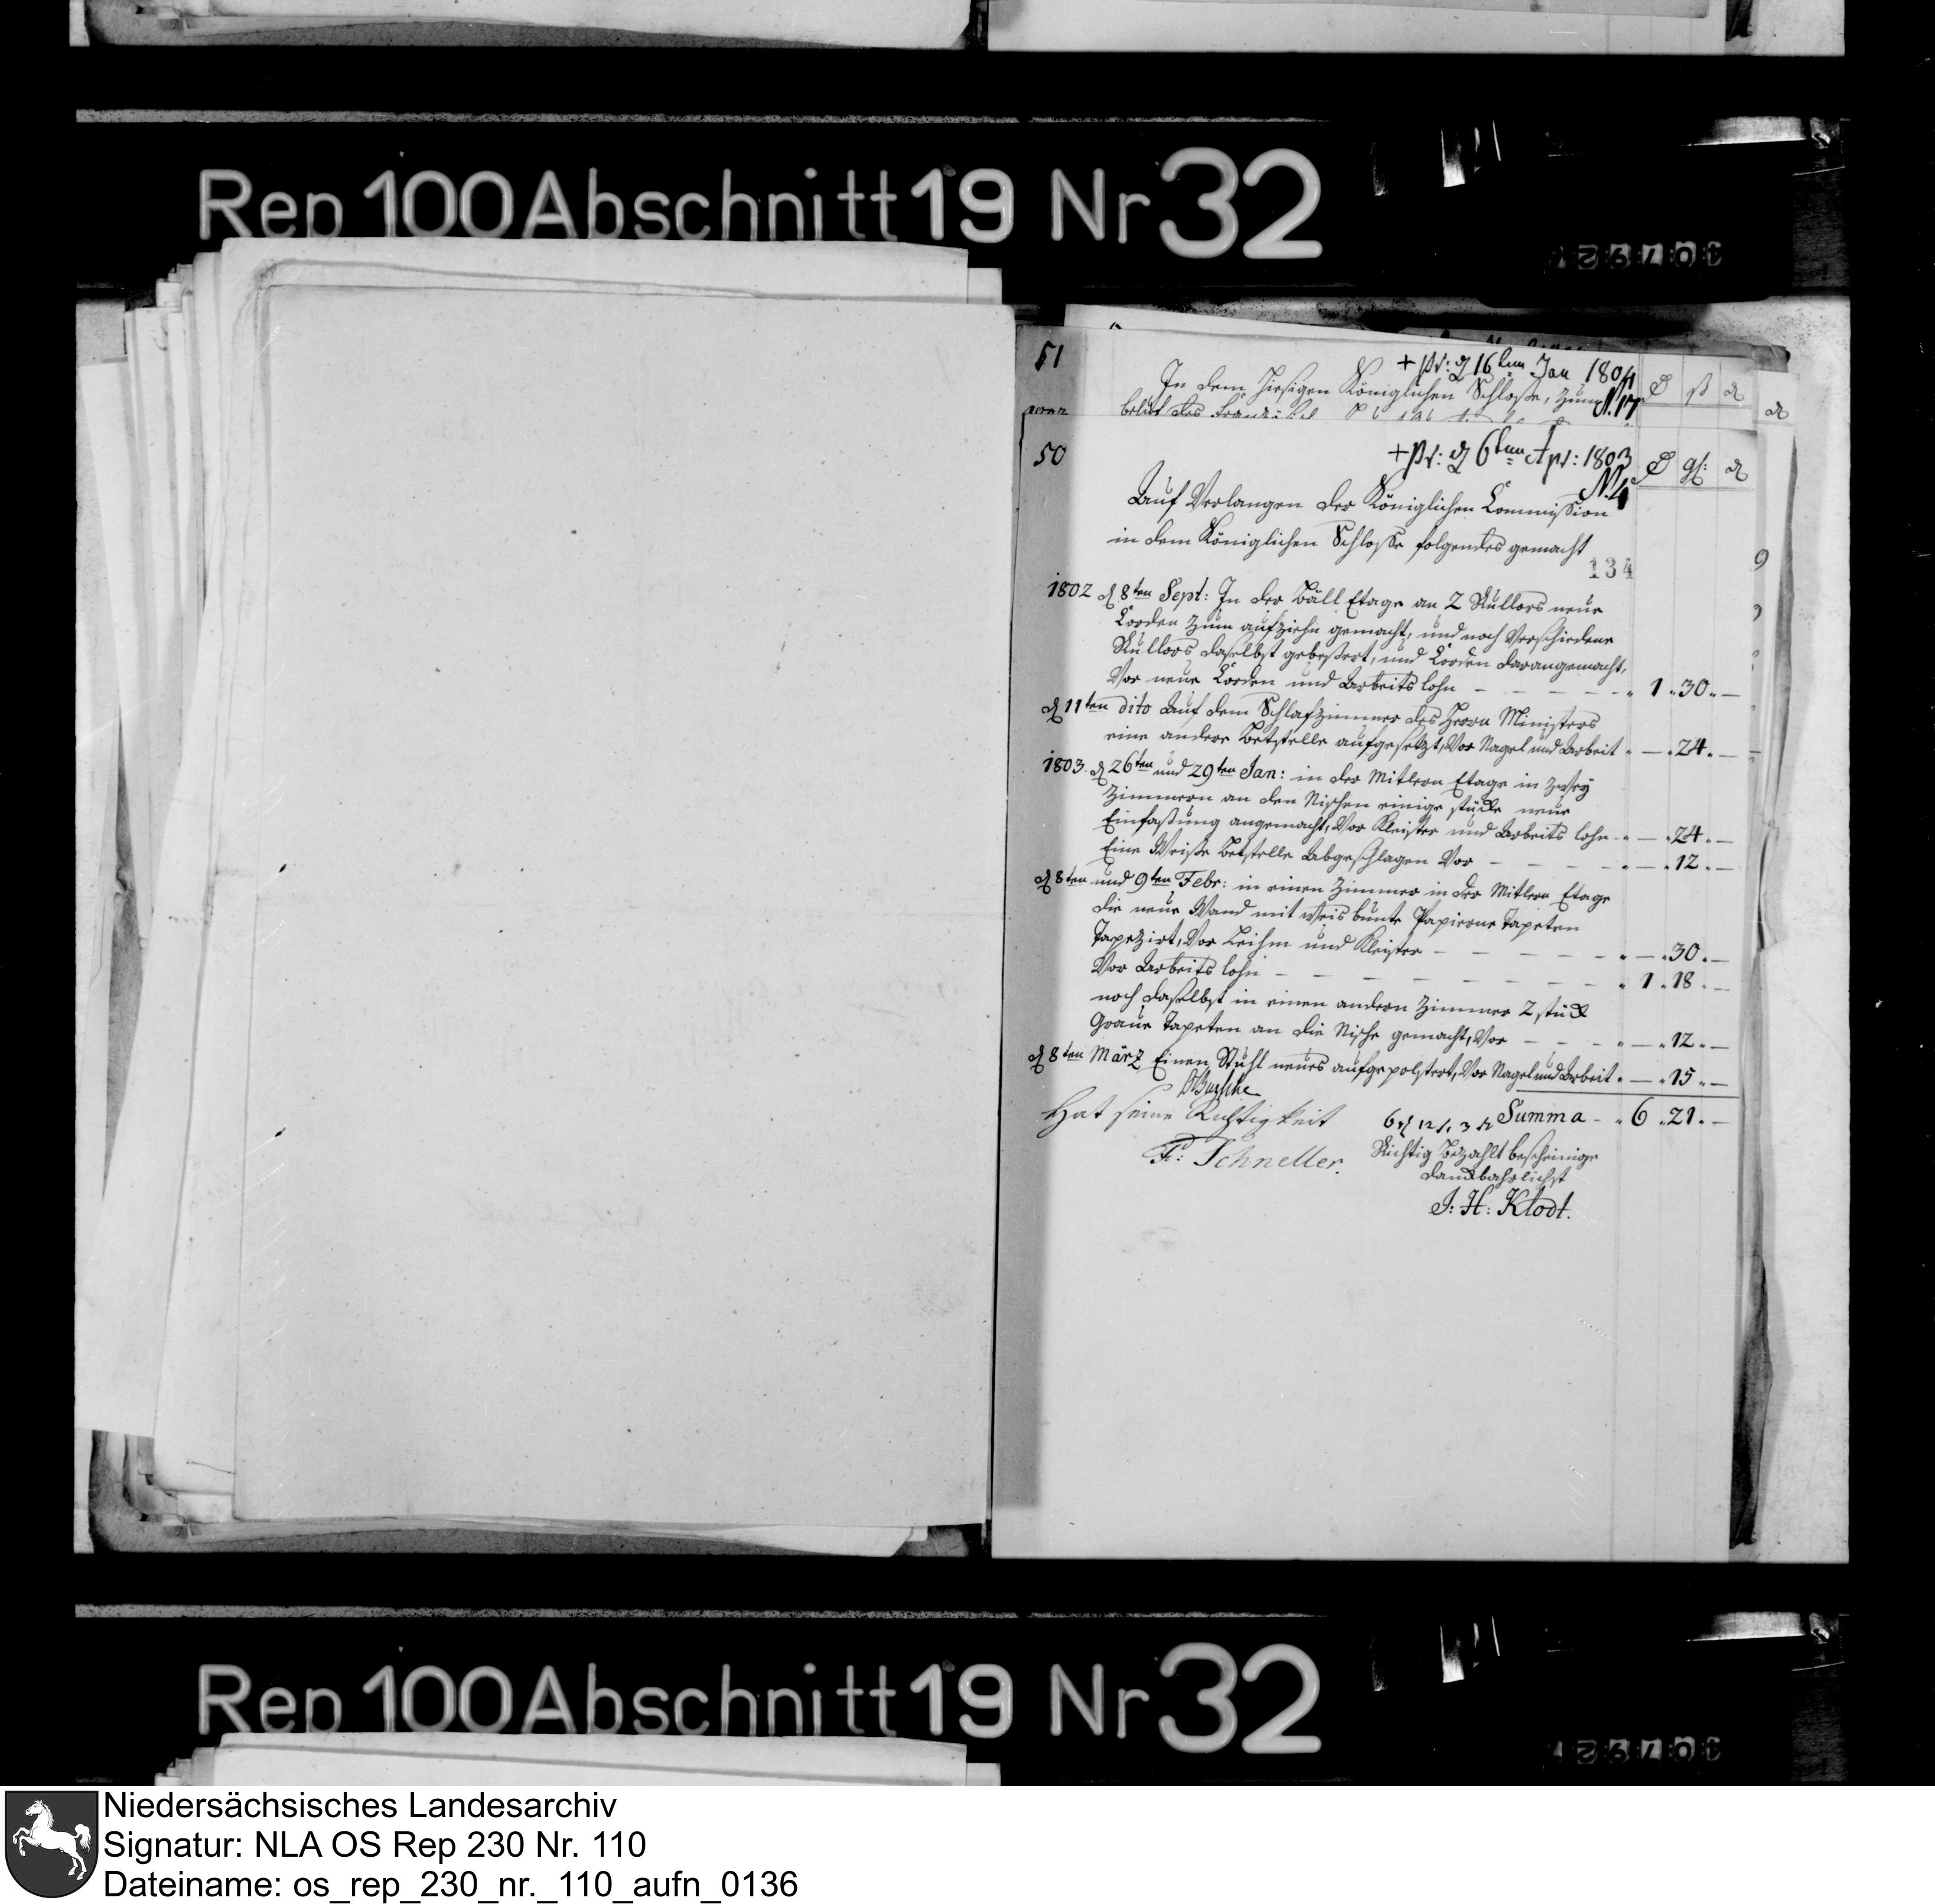 Rep 100 Abschnitt 19 Nr 32
51
+ Pr: d 16ten Jan 1804
In dem hiesigen Königlichen Schloße, zum
N. 17
50
+ Pr: d 6ten Apr: 1803
N. 4
gf:
Auf Verlangen der Königlichen Commission
in dem Königlichen Schlosse folgendes gemacht
134
1802 d. 8ten Sept: In der Bäll Etage an 2 Rullors neue
Corden zum aufziehn gemacht, und noch Verschiedene
Rullors daselbst gebeßert, und Corden darangemacht,
Vor neue Corden und Arbeits lohn - - - - - „ 1 „ 30 „ -
d 11ten dito Auf dem Schlafzimmer des Herrn Ministers
eine andere Betstelle aufgesetzt, Vor Nagel und Arbeit „ - „ 24 „ -
1803. d 26ten und 29ten Jan: in der Mitlern Etage in zwey
Zimmern an den Nischen einige stücke neue
Einfaßung angemacht, Vor Kleister und Arbeits lohn - „ - „ 24 „ -
Eine Weiße Betstelle Abgeschlagen Vor - - - - „ - „ 12 „ -
d 8ten und 9ten Febr: in einen Zimmer in der Mitlern Etage
die neue Wand mit weis bunte Papierne Tapeten
Tapezirt, Vor Leihm und Kleister - - - - - „ - „ 30 „ -
Vor Arbeits lohn - - - - - - - - „ 1 „ 18 „ -
noch daselbst in einen andern Zimmer 2 stück
Graue Tapeten an die Nische gemacht, Vor - - - „ - „ 12 „ -
d 8ten März Einen Stuhl neues aufgepolstert, Vor Nagel und Arbeit „ - „ 15 „ -
Hat seine Richtigkeit
Summa - „ 6 „ 21 „ -
F: Schneller.
Richtig Bezahlt bescheinige
danckbahrlichst
J: H: Klodt.
Rep 100 Abschnitt 19 Nr 32
Niedersächsisches Landesarchiv
Signatur: NLA OS Rep 230 Nr. 110
Dateiname: os_rep_230_nr._110_aufn_0136